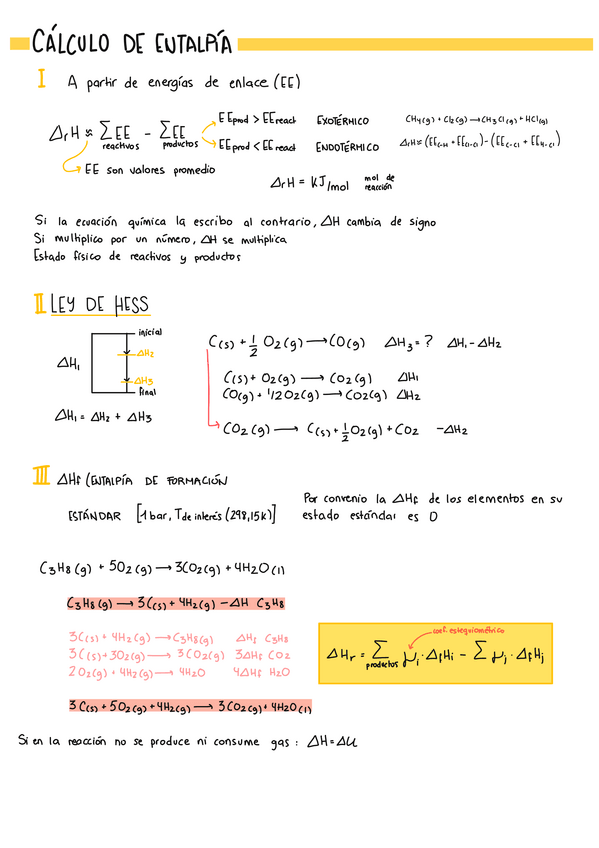 CÁLCULO DE ENTALPÍA
I A partir de energías de enlace (EE)
ΔrH ≈ ΣEE reactivos - ΣEE productos
EEprod > EEreact EXOTÉRMICO
EEprod < EEreact ENDOTÉRMICO
CH4(g) + Cl2(g) → CH3Cl(g) + HCl(g)
ΔrH ≈ (EEC-H + EECl-Cl) - (EEC-Cl + EEH-Cl)
EE son valores promedio
ΔrH = KJ/mol mol de reacción
Si la ecuación química la escribo al contrario, ΔH cambia de signo
Si multiplico por un número, ΔH se multiplica
Estado físico de reactivos y productos
II LEY DE HESS
inicial
ΔH1
ΔH2
ΔH3
final
ΔH1 = ΔH2 + ΔH3
C(s) + 1/2 O2(g) → CO(g) ΔH3 = ? ΔH1 - ΔH2
C(s) + O2(g) → CO2(g) ΔH1
CO(g) + 1/2O2(g) → CO2(g) ΔH2
CO2(g) → C(s) + 1/2 O2(g) + CO2 -ΔH2
III ΔHf (ENTALPÍA DE FORMACIÓN
ESTÁNDAR [1 bar, T de interés (298,15K)]
Por convenio la ΔHf de los elementos en su
estado estándar es 0
C3H8(g) + 5O2(g) → 3CO2(g) + 4H2O(l)
C3H8(g) → 3C(s) + 4H2(g) - ΔH C3H8
3C(s) + 4H2(g) → C3H8(g) ΔHf C3H8
3C(s) + 3O2(g) → 3CO2(g) 3ΔHf CO2
2O2(g) + 4H2(g) → 4H2O 4ΔHf H2O
3C(s) + 5O2(g) + 4H2(g) → 3CO2(g) + 4H2O(l)
coef. estequiométrico
ΔHr = Σ productos μi · ΔfHi - Σ μj · ΔfHj
Si en la reacción no se produce ni consume gas : ΔH = ΔU